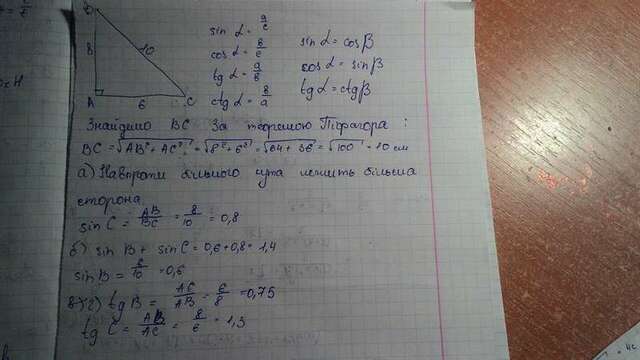 B
8
10
A
6
C
sin α = a/c
cos α = b/c
tg α = a/b
ctg α = b/a
sin α = cos β
cos α = sin β
tg α = ctg β
Знайдимо BC за теоремою Піфагора :
BC = √AB² + AC² = √8² + 6² = √64 + 36 = √100 = 10 см
а) Навпроти більшого кута лежить більша
сторона
sin C = AB/BC = 8/10 = 0,8
б) sin B + sin C = 0,6 + 0,8 = 1,4
sin B = 6/10 = 0,6
в) г) tg B = AC/AB = 6/8 = 0,75
tg C = AB/AC = 8/6 = 1,3